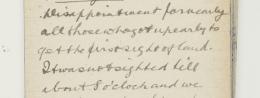 disappointment for nearly
all those who got up early to
get the first sight of land.
It was not sighted till
about 8 o'clock and we